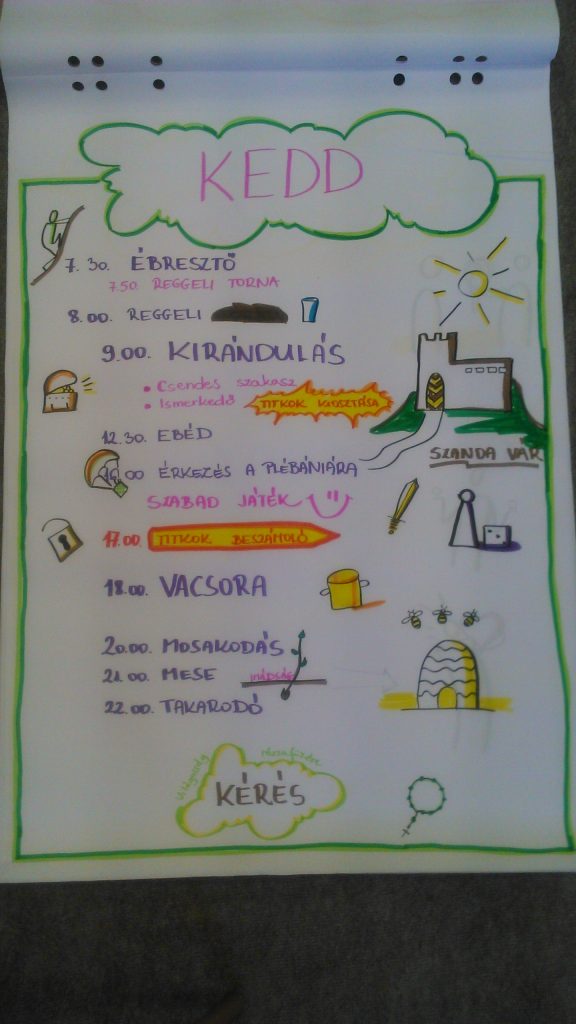 KEDD
7.30. ÉBRESZTŐ
7.50. REGGELI TORNA
8.00. REGGELI
9.00. KIRÁNDULÁS
• Csendes szakasz
• Ismerkedő
TITKOK KIOSZTÁSA
12.30. EBÉD
SZANDA VÁR
ÉRKEZÉS A PLÉBÁNIÁRA
SZABAD JÁTÉK
17.00. TITKOK BESZÁMOLÓ
18.00. VACSORA
20.00. MOSAKODÁS
21.00. MESE IMÁDSÁG
22.00. TAKARODÓ
KÉRÉS